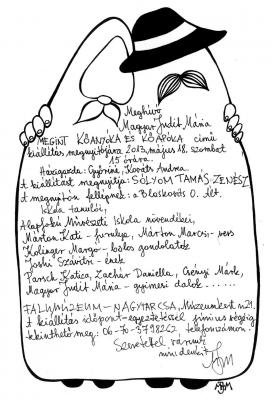 Meghívó
Magyar Judit Mária
MEGINT KŐANYÓKA ÉS KŐAPÓKA című
kiállítás megnyitójára 2013, május 18. szombat
15 órára.
Házigazda: Győriné, Kováts Andrea.
A kiállítást megnyitja: SÓLYOM TAMÁS-ZENÉSZ
A megnyitón fellépnek: a Blaskovits O. Ált.
iskola tanulói,
Alapfokú Művészeti Iskola növendékei,
Márton Kati - furulya, Márton Marcsi - vers
Kolinger Margó - bölcs gondolatok
Joshi Szávitri - ének
Parsch Katica, Zachár Daniella, Csényi Márk,
Magyar Judit Mária - gyimesi dalok ......
FALUMÚZEUM - NAGYTARCSA, Múzeumkert u 21.
A kiállítás időpont-egyeztetéssel június végéig
tekinthető meg: 06-70-3798262 telefonszámon.
Szeretettel várunk
mindenkit
MJM